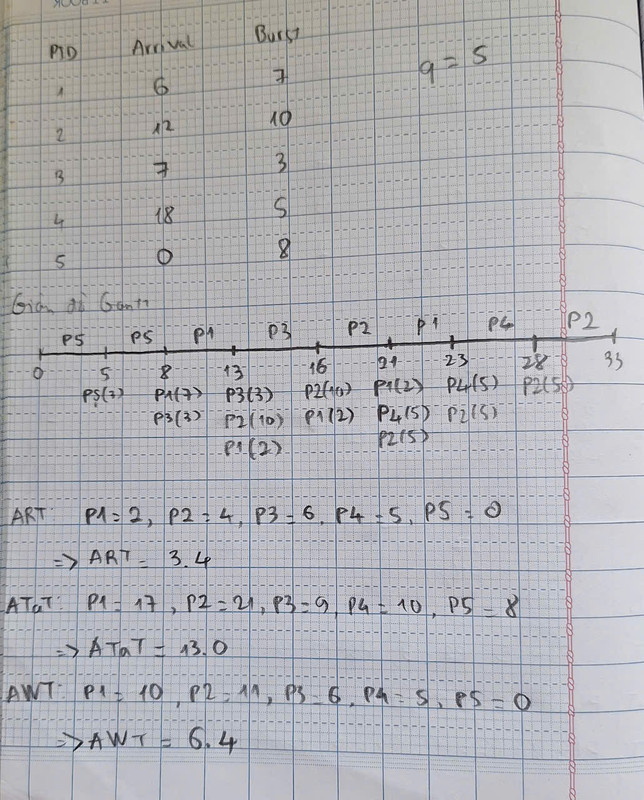 PID Arrival Burst
q = 5
1 6 7
2 12 10
3 7 3
4 18 5
5 0 8
Giản đồ Gantt
P5 P5 P1 P3 P2 P1 P4 P2
0 5 8 13 16 21 23 28 33
P5(3) P1(7) P3(3) P2(10) P1(2) P4(5) P2(5)
P3(3) P2(10) P1(2) P4(5) P2(5)
P1(2) P2(5)
ART P1=2, P2=4, P3=6, P4=5, P5=0
=> ART = 3.4
ATaT: P1=17, P2=21, P3=9, P4=10, P5=8
=> ATaT = 13.0
AWT: P1=10, P2=11, P3=6, P4=5, P5=0
=> AWT = 6.4